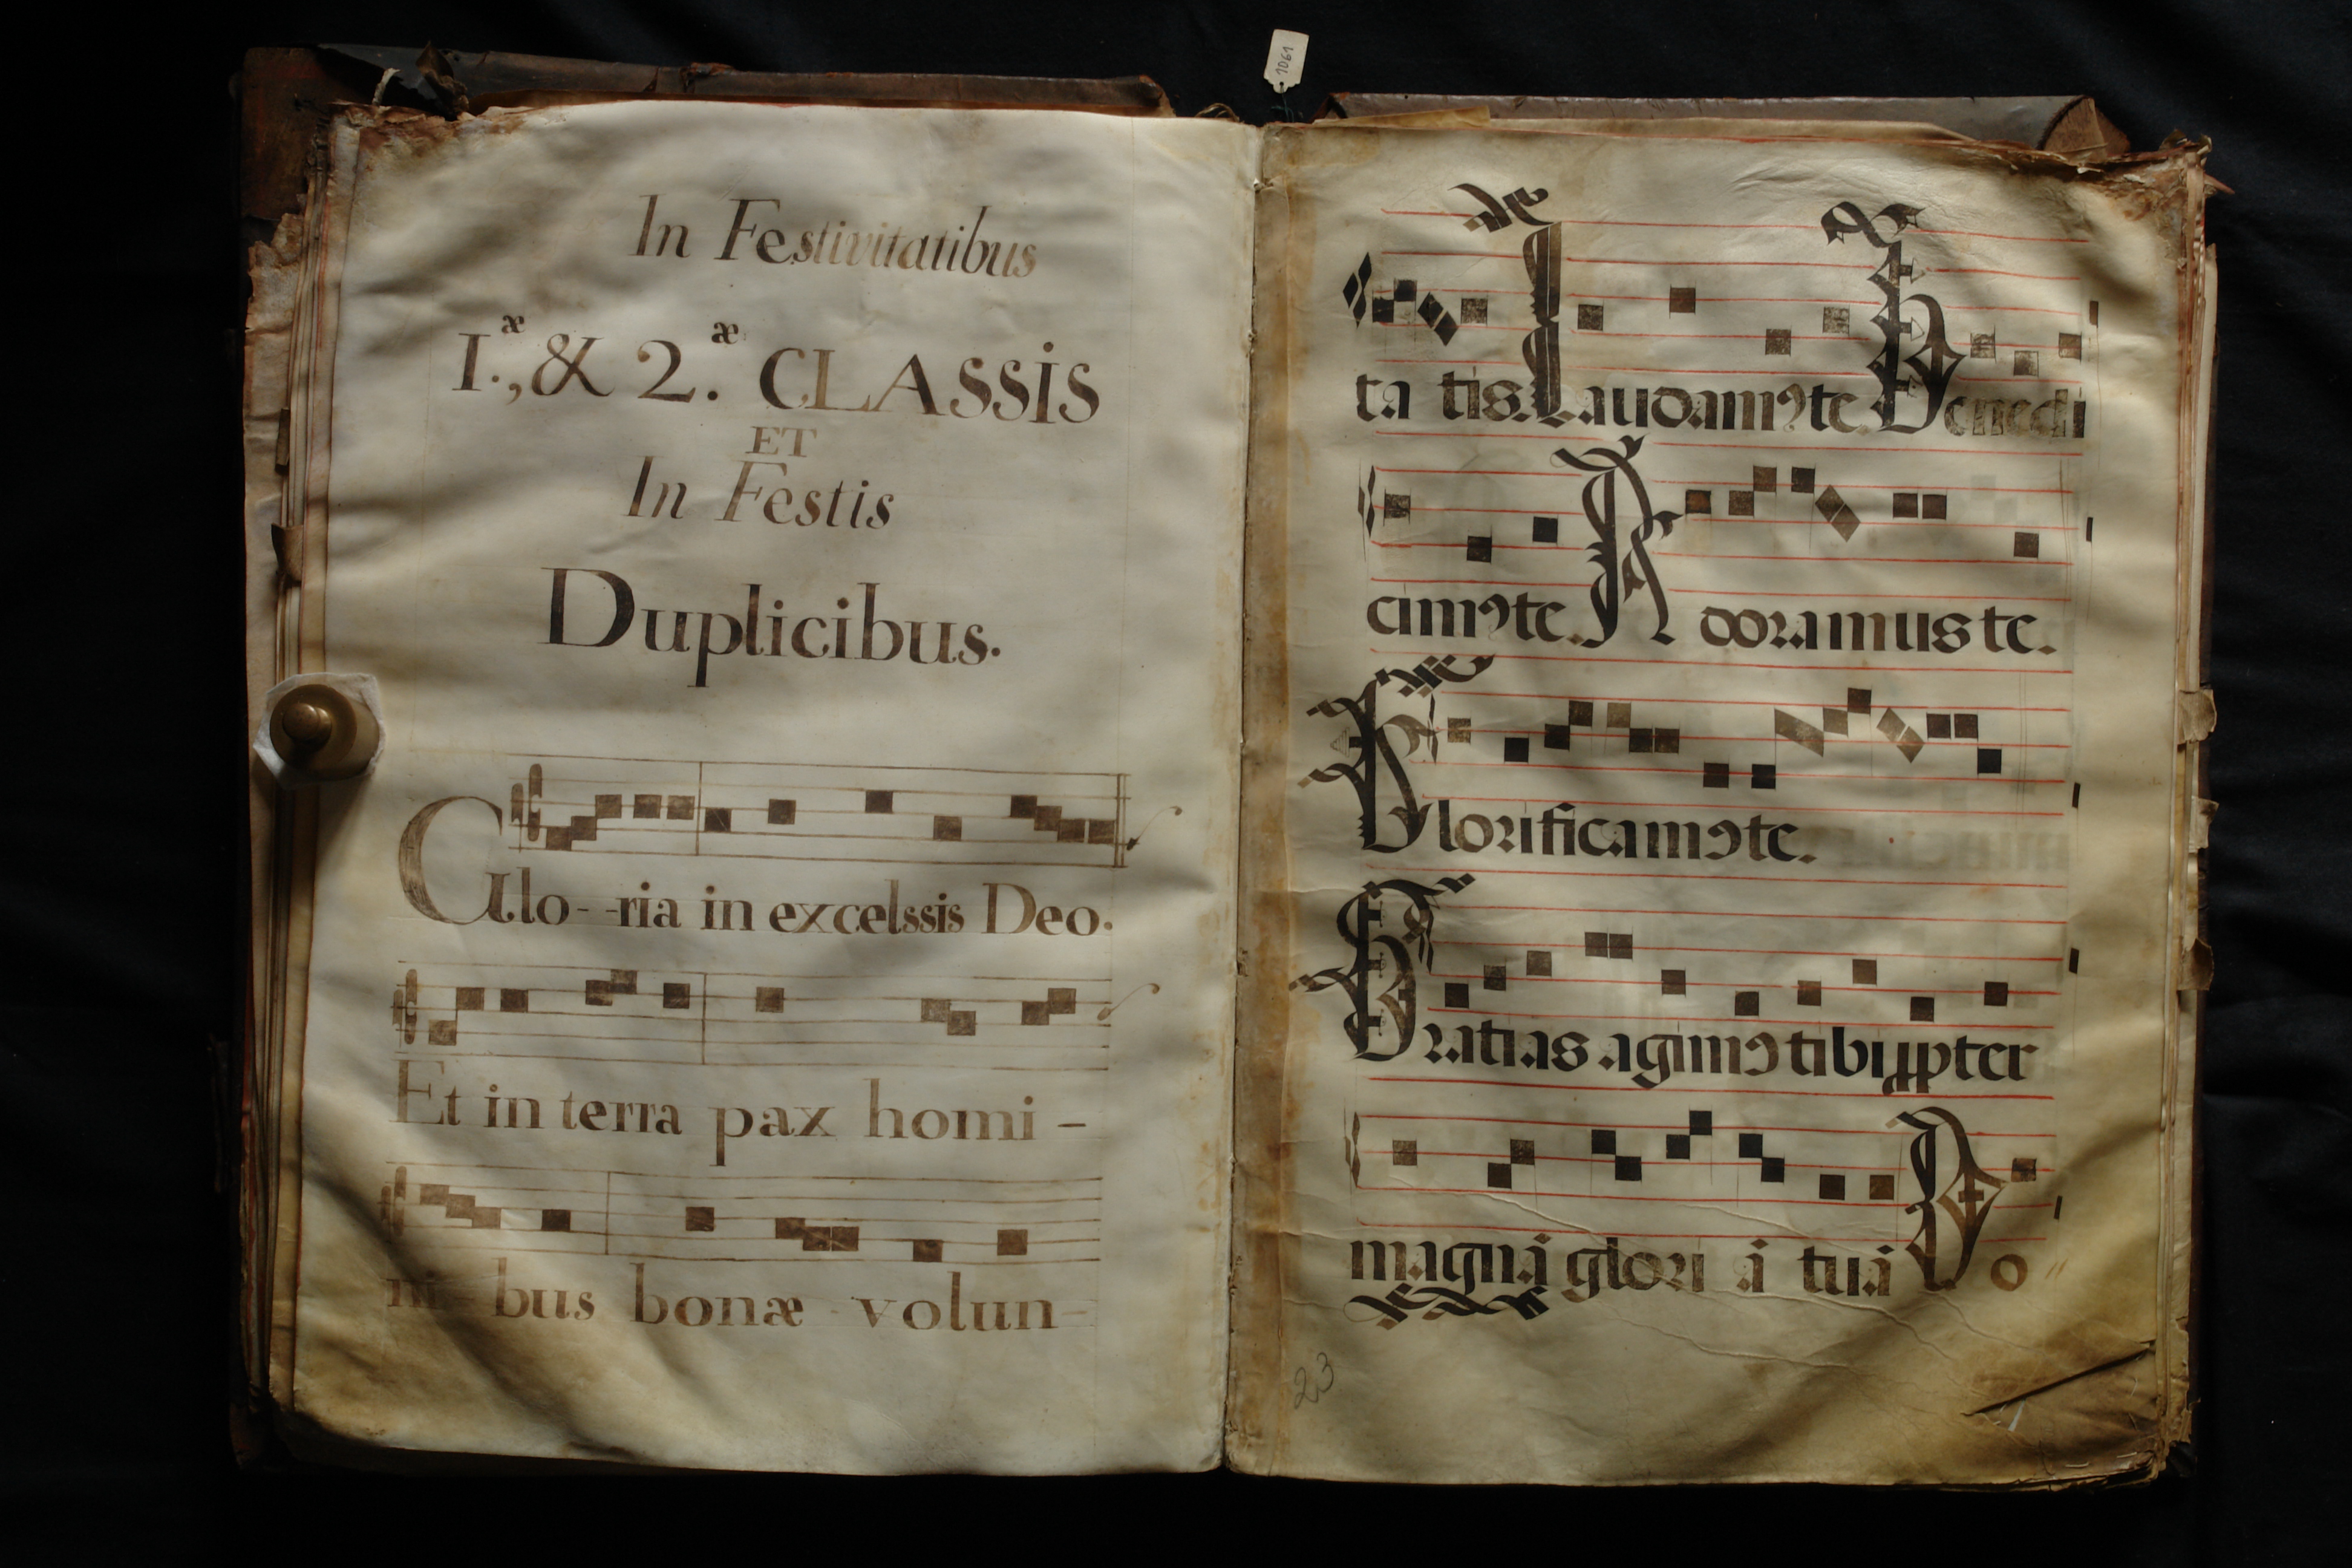 1061
In Festivitatibus
1.æ, & 2.æ CLASSIS
ET
In Festis
Duplicibus.
Glo--ria in excelssis Deo.
Et in terra pax homi-
ni-bus bonæ volun-
ta tis. Laudamꝰte. Benedi
cimꝰte. A doramus te.
Glorificamꝰte.
Gratias agimꝰ tibi ꝓpter
magnā glori ā tuā Do
23